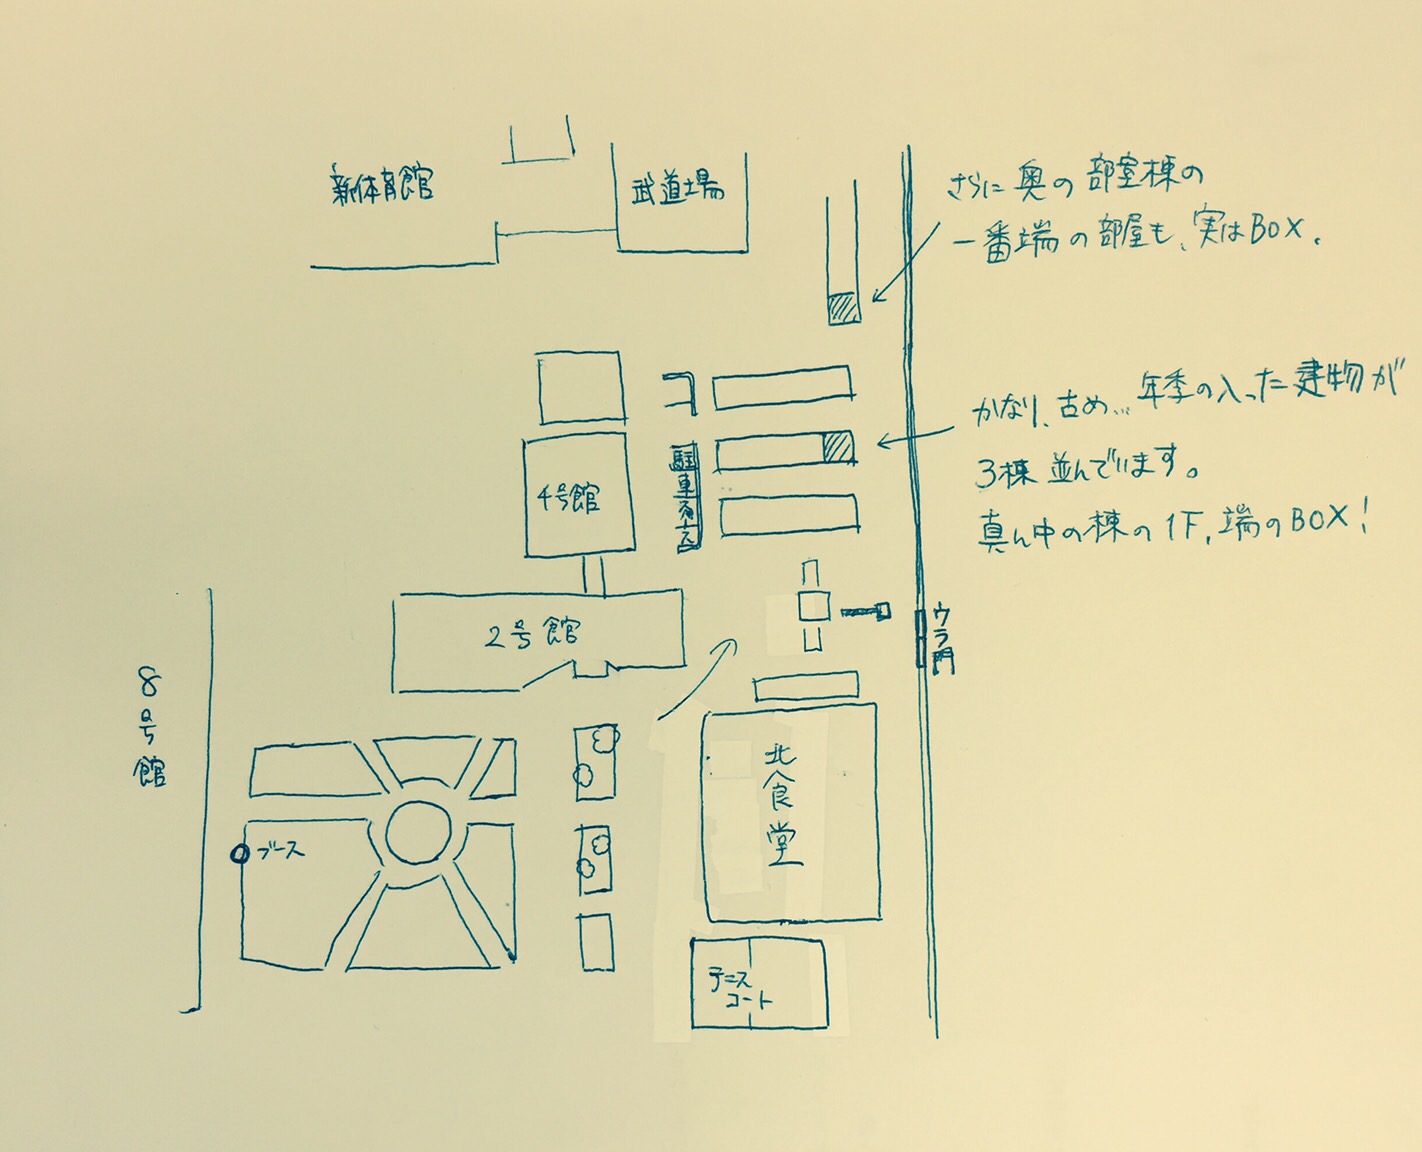 新体育館
武道場
さらに奥の部室棟の
一番端の部屋も、実はBOX.
かなり、古め…年季の入った建物が
3棟並んでいます。
真ん中の棟の1F,端のBOX!
4号館
2号館
ウラ門
8号館
北食堂
ブース
テニス
コート